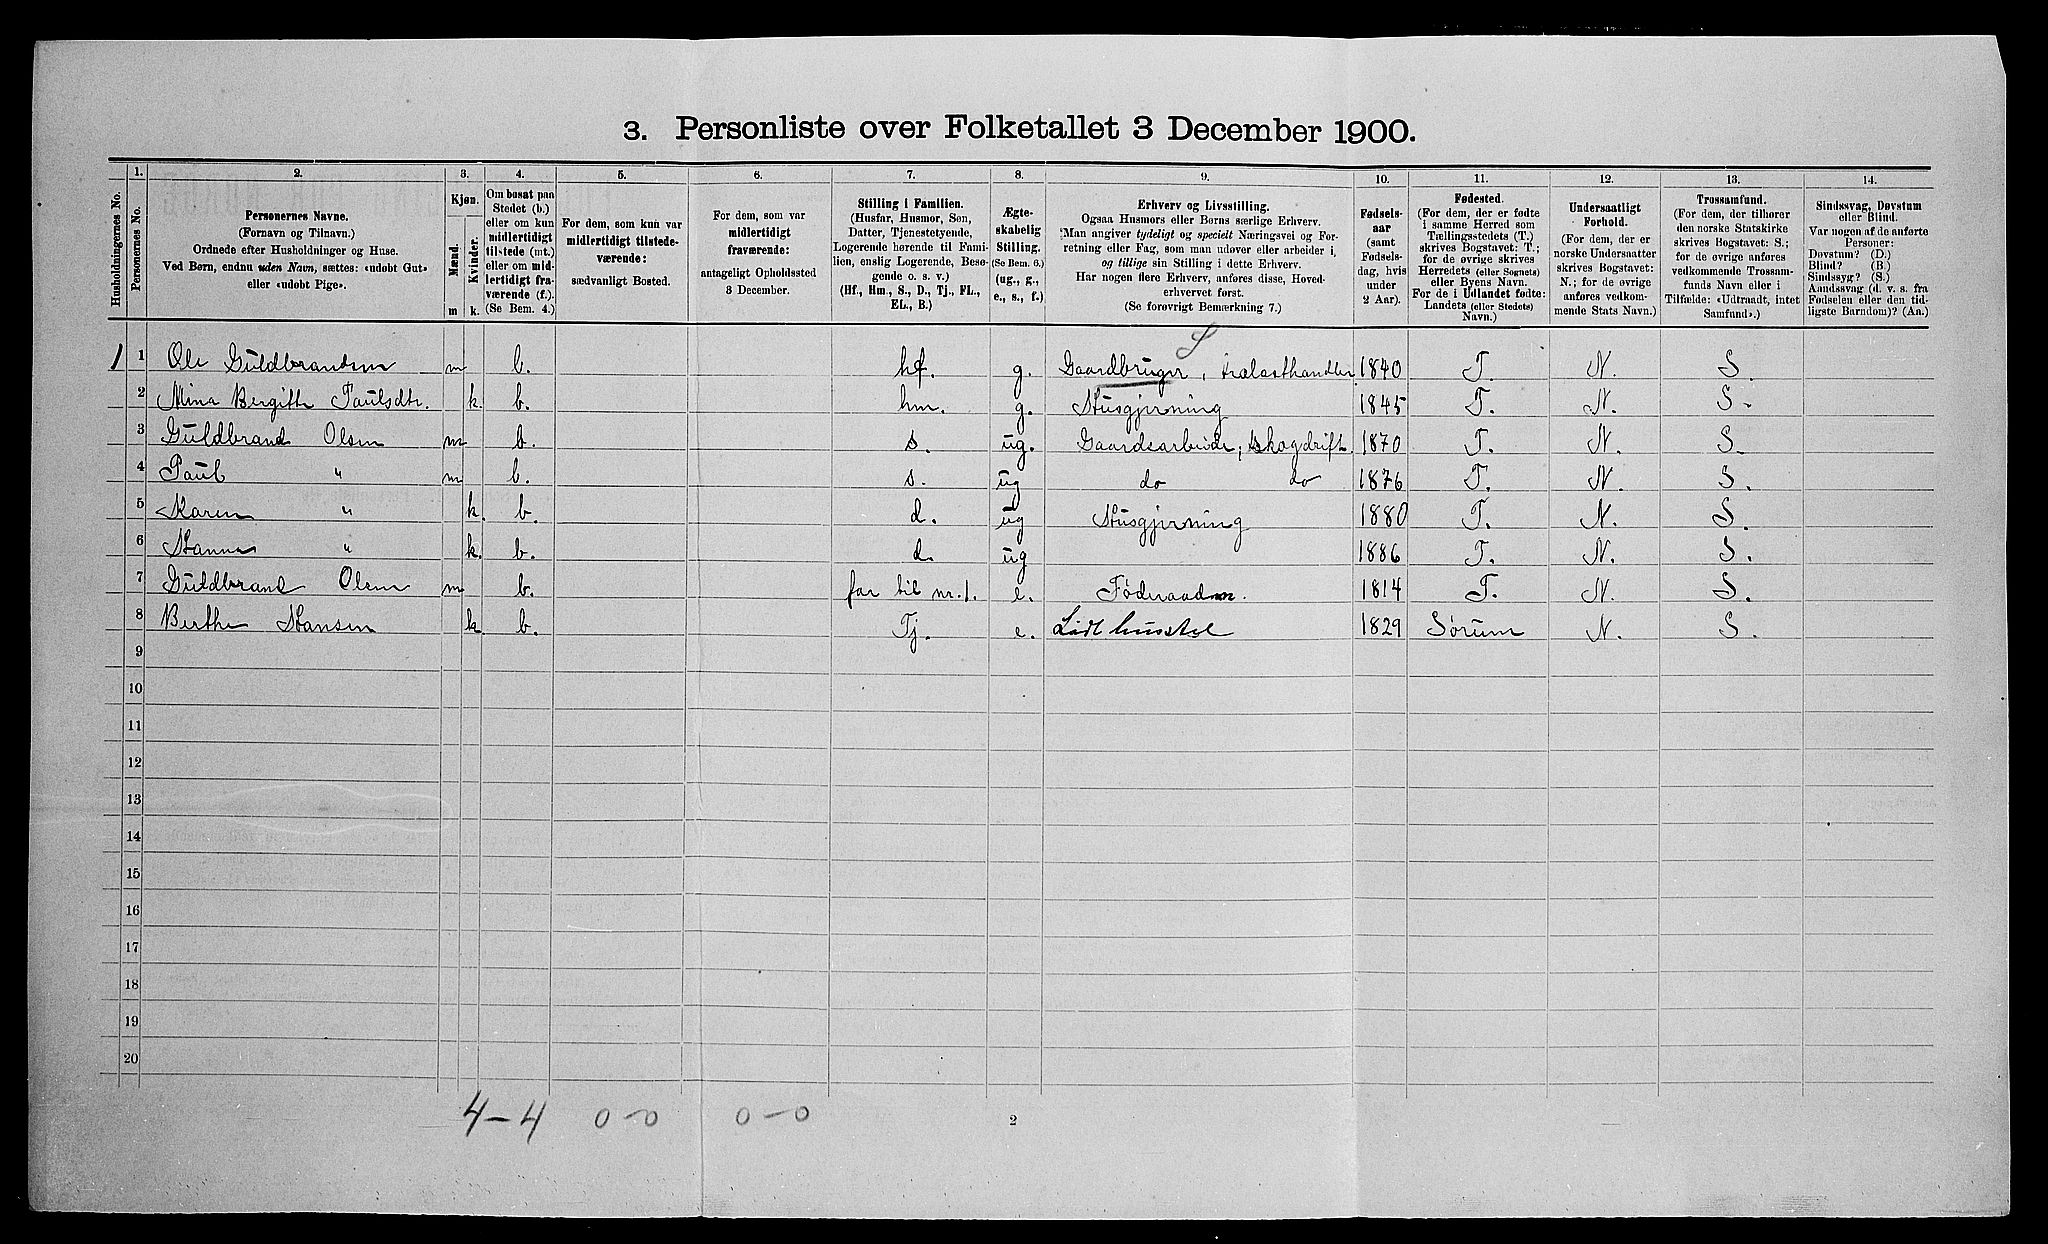 3. Personliste over Folketallet 3 December 1900.
Husholdningernes No.
1. Personernes No.
2. Personernes Navne.
(Fornavn og Tilnavn.)
Ordnede efter Husholdninger og Huse.
Ved Børn, endnu uden Navn, sættes: «udøbt Gut»
eller «udøbt Pige».
3. Kjøn.
Mænd. Kvinder.
m k.
4. Om bosat paa
Stedet (b.)
eller om kun
midlertidigt
tilstede (mt.)
eller om mid-
lertidigt fra-
værende (f.).
(Se Bem. 4.)
5. For dem, som kun var
midlertidigt tilstede-
værende:
sædvanligt Bosted.
6. For dem, som var
midlertidigt
fraværende:
antageligt Opholdssted
3 December.
7. Stilling i Familien.
(Husfar, Husmor, Søn,
Datter, Tjenestetyende,
Logerende hørende til Fami-
lien, enslig Logerende, Besø-
gende o. s. v.)
(Hf., Hm., S., D., Tj., FL.,
EL., B.)
8. Ægte-
skabelig
Stilling.
(Se Bem. 6.)
(ug., g.,
e., s., f.)
9. Erhverv og Livsstilling.
Ogsaa Husmors eller Børns særlige Erhverv.
Man angiver tydeligt og specielt Næringsvei og For-
retning eller Fag, som man udøver eller arbeider i,
og tillige sin Stilling i dette Erhverv.
Har nogen flere Erhverv, anføres disse, Hoved-
erhvervet først.
(Se forøvrigt Bemærkning 7.)
10. Fødsels-
aar
(samt
Fødsels-
dag, hvis
under
2 Aar).
11. Fødested.
(For dem, der er fødte
i samme Herred som
Tællingsstedets (T.)
skrives Bogstavet: T.;
for de øvrige skrives
Herredets (eller Sognets)
eller Byens Navn.
For de i Udlandet fødte:
Landets (eller Stedets)
Navn.)
12. Undersaatligt
Forhold.
(For dem, der er
norske Undersaatter
skrives Bogstavet:
N.; for de øvrige
anføres vedkom-
mende Stats Navn.)
13. Trossamfund.
(For dem, der tilhører
den norske Statskirke
skrives Bogstavet: S.;
for de øvrige anføres
vedkommende Trossam-
funds Navn eller i
Tilfælde: «Udtraadt, intet
Samfund».)
14. Sindssvag, Døvstum
eller Blind.
Var nogen af de anførte
Personer:
Døvstum? (D.)
Blind? (B.)
Sindssyg? (S.)
Aandssvag (d. v. s. fra
Fødselen eller den tid-
ligste Barndom)? (Aa.)
S
1 1 Ole Guldbrandsen m b. hf. g. Gaardbruger, trælasthandler 1840 T. N. S.
2 Mina Bergitte Paulsdtr. k. b. hm. g. Husgjerning 1845 T. N. S.
3 Guldbrand Olsen m b. s. ug. Gaardsarbeide, skogdrift. 1870 T. N. S.
4 Paul " m b. s. ug do do 1876 T. N. S.
5 Karen " k. b. d. ug Husgjerning 1880 T. N. S.
6 Hanna " k. b. d. ug 1886 T. N. S.
7 Guldbrand Olsen m b. far til nr. 1. e. Føderaadm. 1814 T. N. S.
8 Berthe Hansen k b. Tj. e. husstel 1829 Sørum N. S.
9
10
11
12
13
14
15
16
17
18
19
20
4-4 0-0 0-0
2